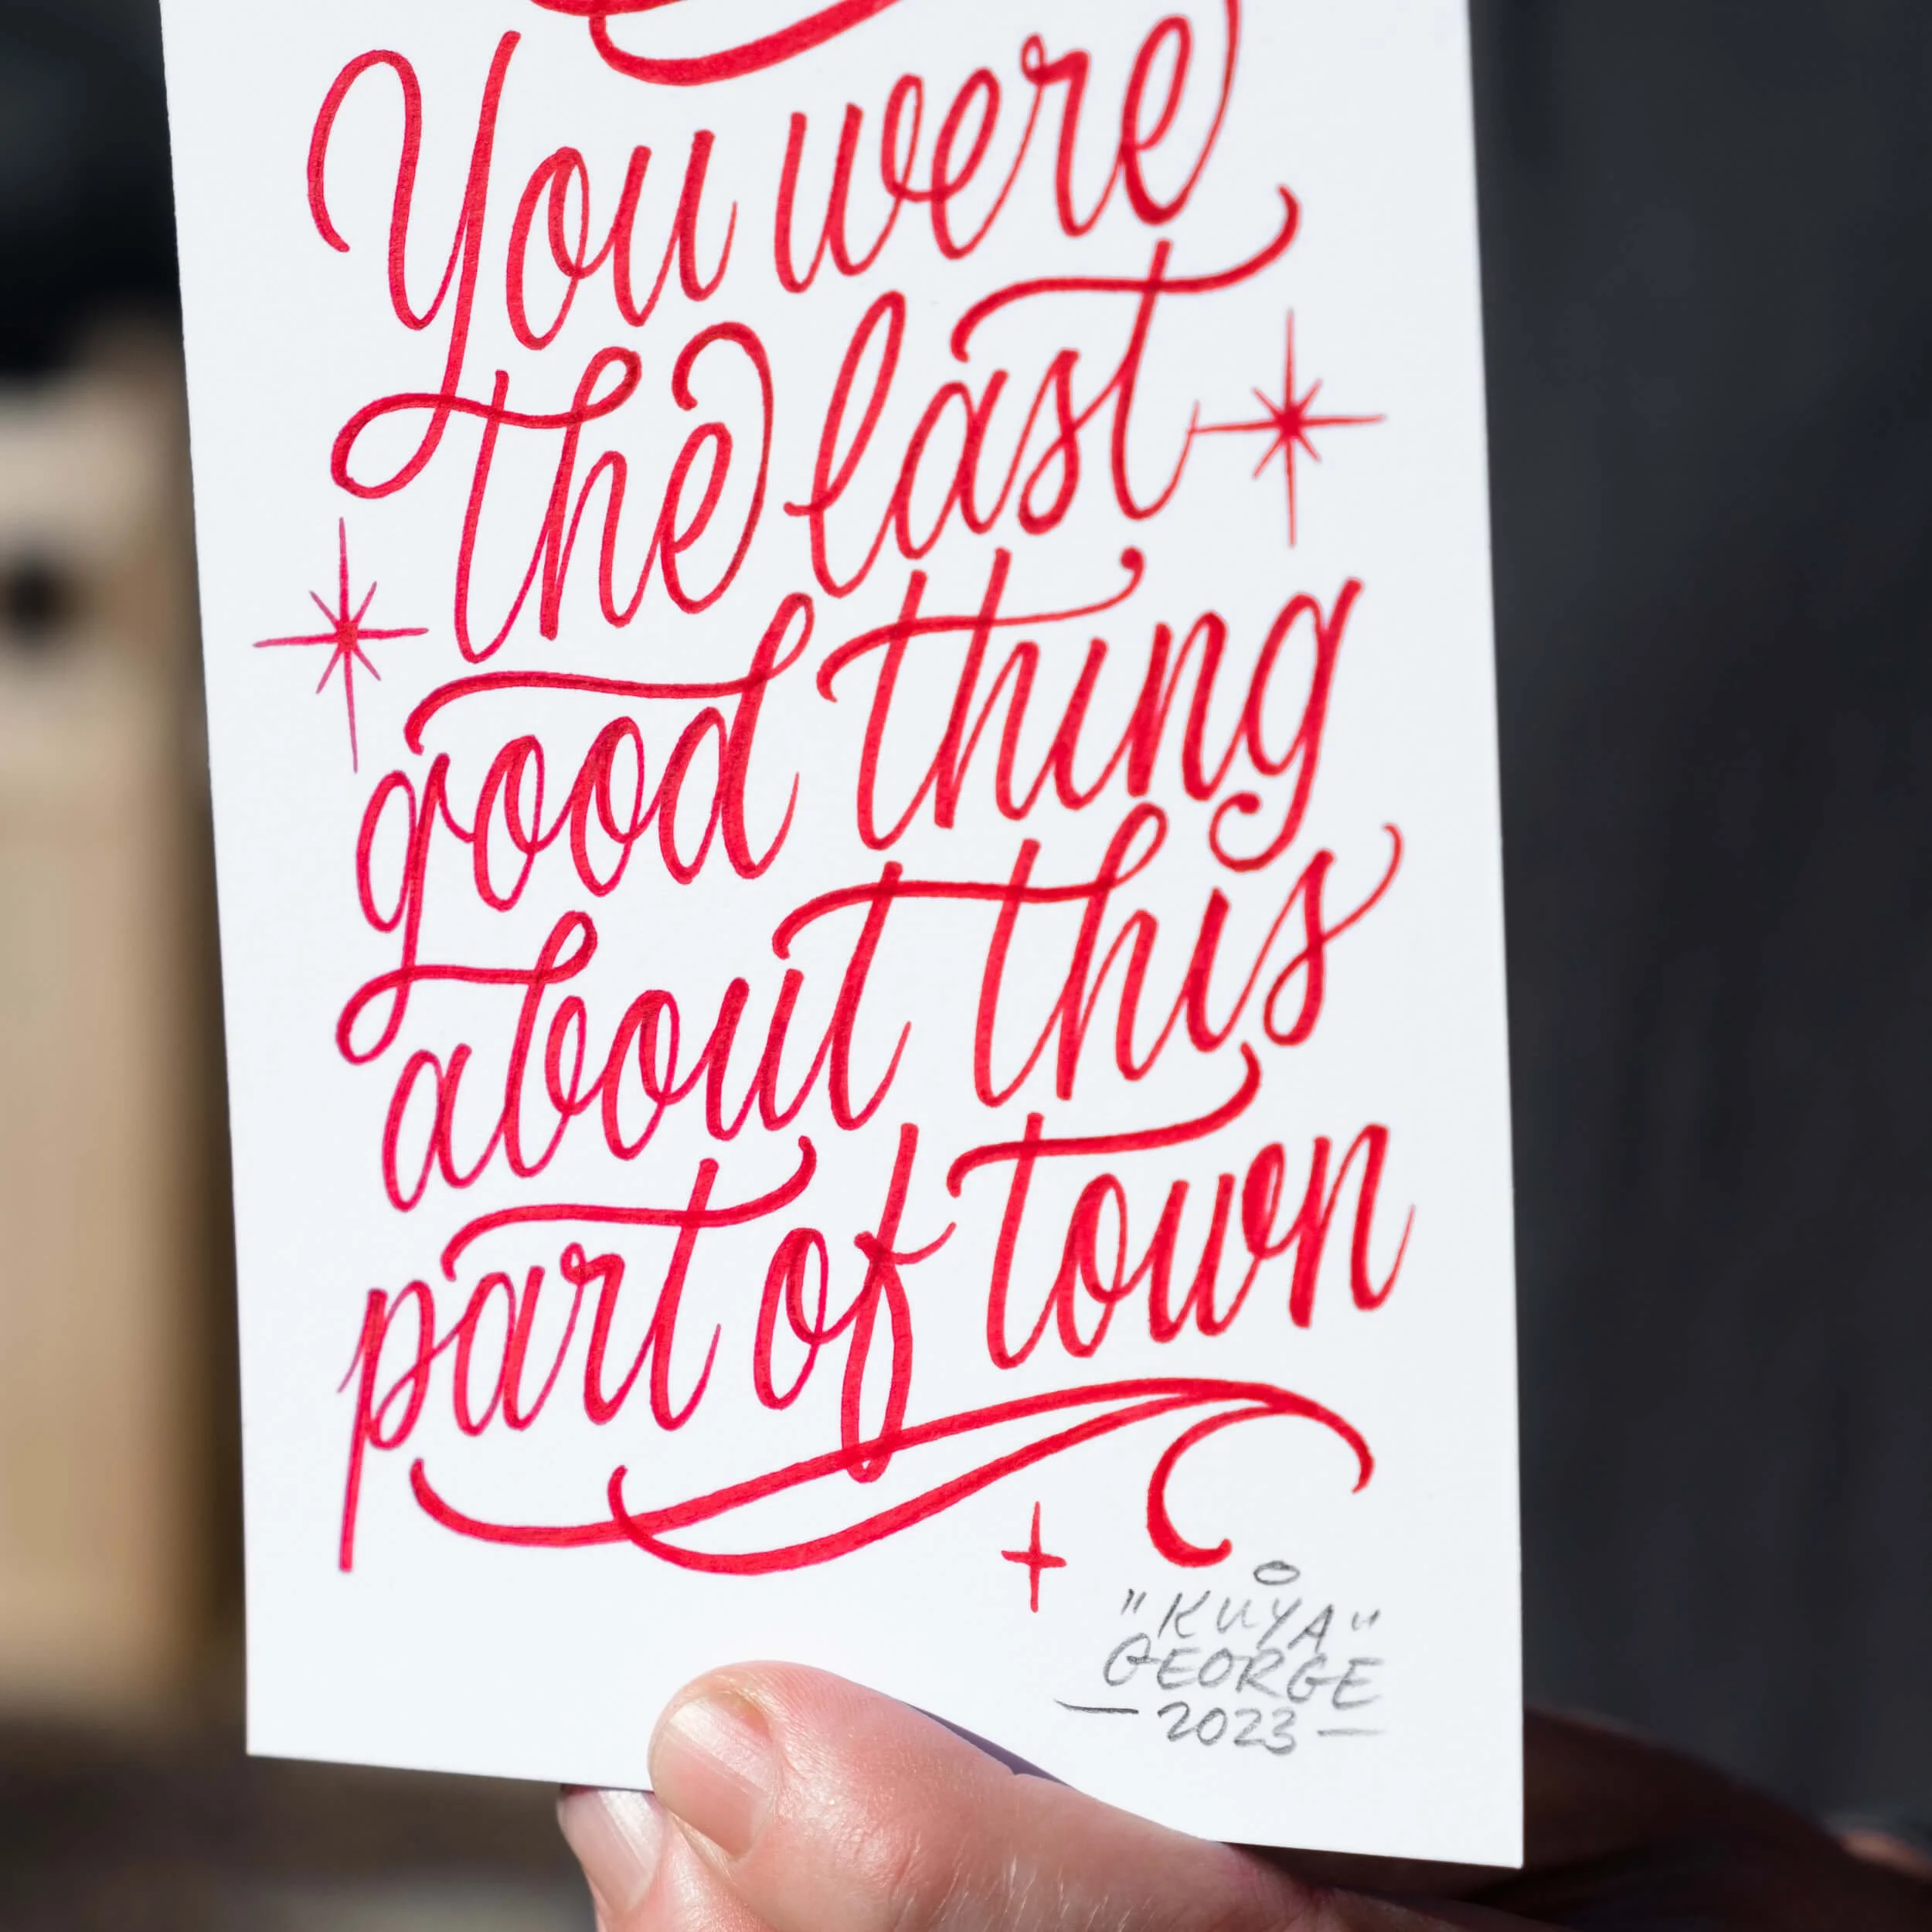 You were
the last
good thing
about this
part of town
"KUYA"
GEORGE
— 2023 —